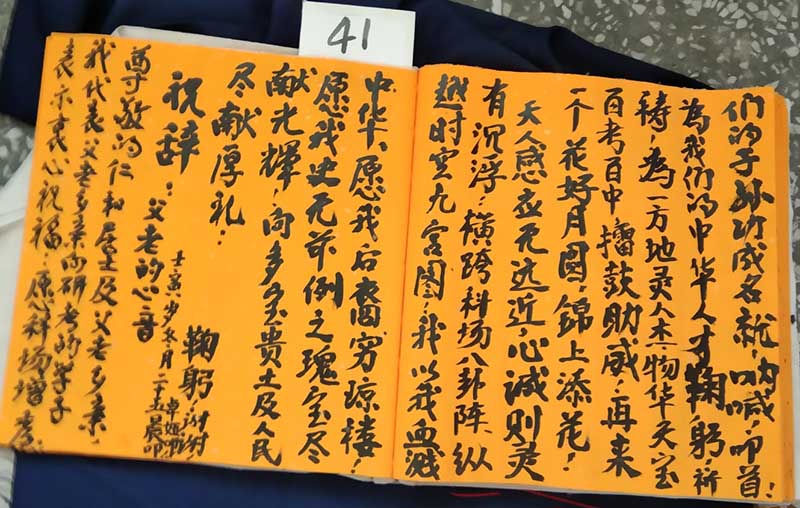 41
们的子孙功成名就，呐喊，叩首！
为我们的中华人才鞠躬祈
祷！为一方地灵人杰物华天宝
百考百中擂鼓助威，再来
一个花好月圆，锦上添花！
天人感应无远近，心诚则灵
有沉浮，横跨科场八卦阵纵
越时空九宫图，我以我血溅
中华，愿我后裔穷琼楼！
愿我史无前例之瑰宝尽
献光辉，向多宝贵土及人民
尽献厚礼！
鞠躬谢谢
壬寅冬月二十五辰卯
祝辞：父老的心音
尊敬的仁和居士及父老乡亲，
我代表父老乡亲向研考的学子
表示衷心祝福，愿科场增